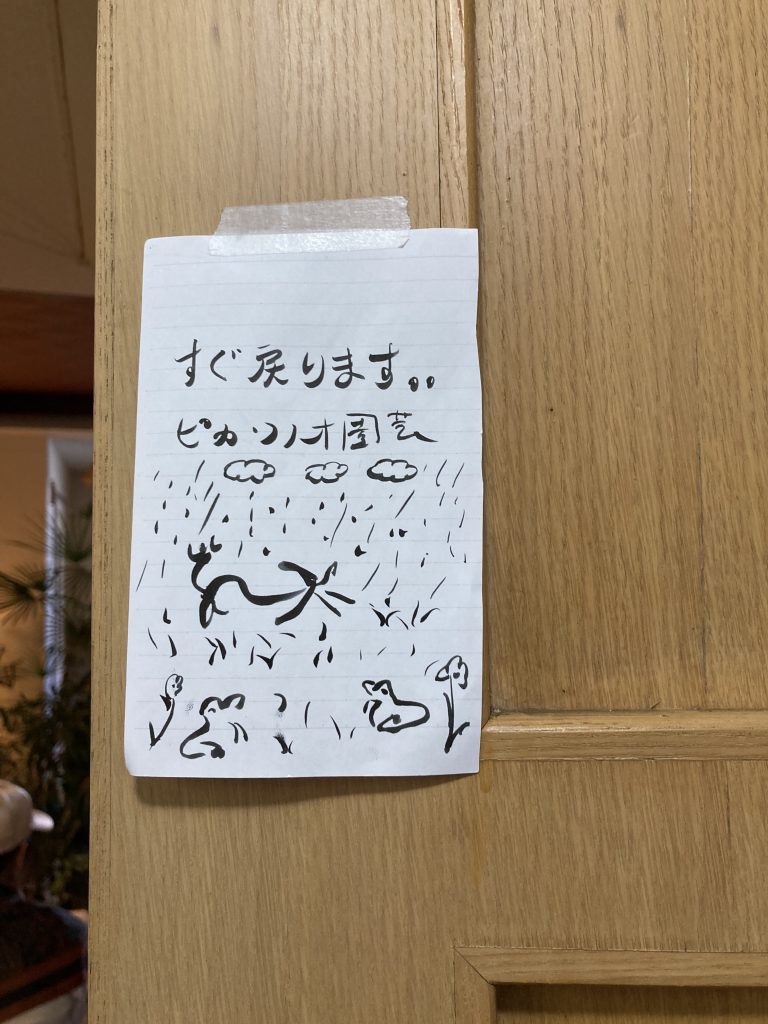 すぐ戻ります。。
ピカソノオ園芸